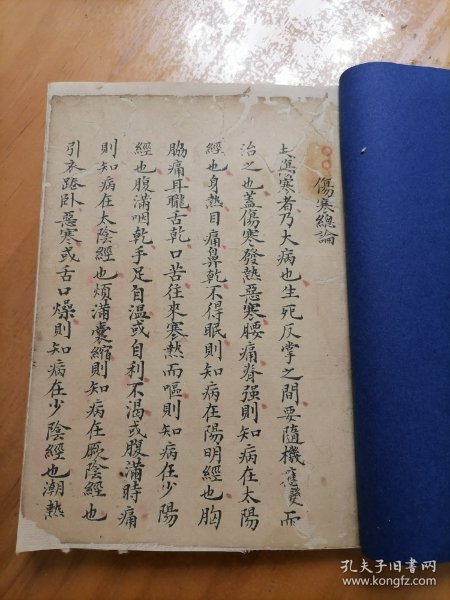 傷寒總論
夫傷寒者乃大病也生死反掌之間要隨機應變而
治之也蓋傷寒發熱惡寒腰痛脊強則知病在太陽
經也身熱目痛鼻乾不得眠則知病在陽明經也胸
脇痛耳聾舌乾口苦往來寒熱而嘔則知病在少陽
經也腹滿咽乾手足自溫或自利不渴或腹滿時痛
則知病在太陰經也煩滿囊縮則知病在厥陰經也
引衣踡卧惡寒或舌口燥則知病在少陰經也潮熱
孔夫子旧书网
www.kongfz.com